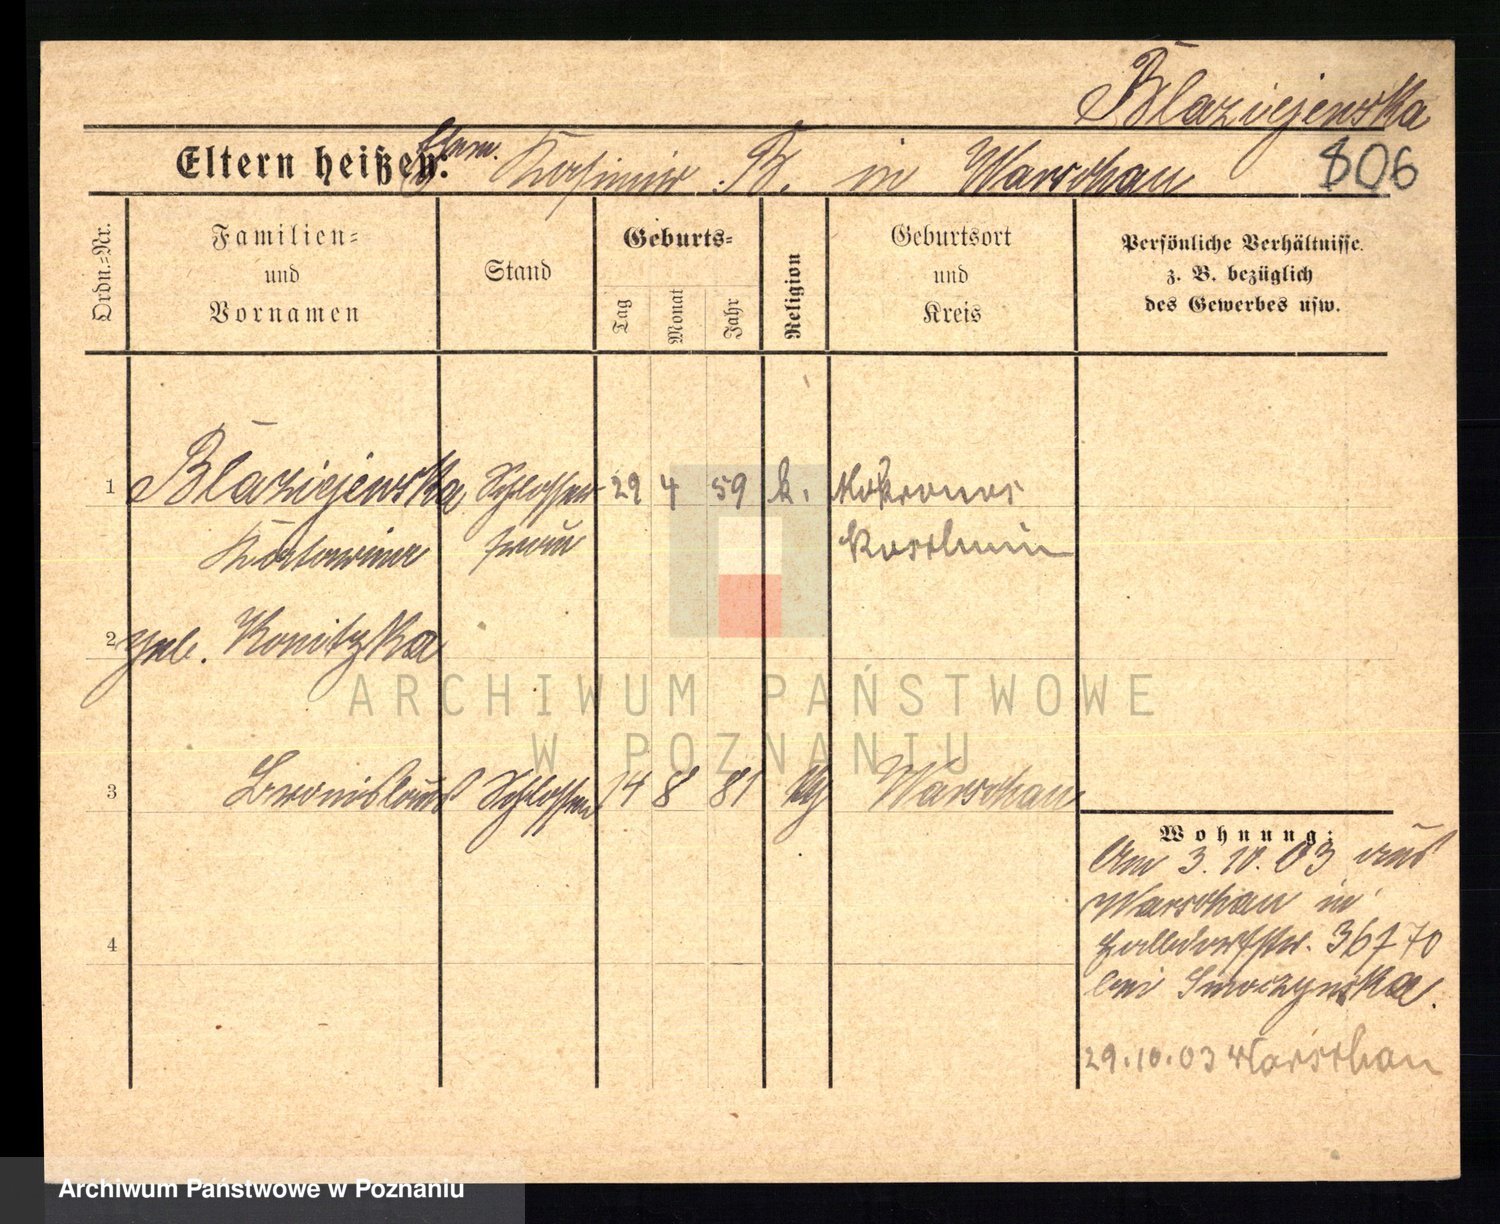 Blaziejewska
Eltern heißen: Ehem. Kasimir B. in Warschau 806
Ordn.-Nr.
Familien-
und
Vornamen
Stand
Geburts-
Tag Monat Jahr
Religion
Geburtsort
und
Kreis
Persönliche Verhältnisse.
z. B. bezüglich
des Gewerbes usw.
1 Blaziejewska Schlosser 29 4 59 k. Mokronos
Katarina frau Koschmin
2 geb. Konitzka
3 Bronislaus Schlosser 14 8 81 Warschau
4
Wohnung:
Am 3.10.03 aus
Warschau in
36 70
bei Smoczynska.
29.10.03 Warschau
ARCHIWUM PAŃSTWOWE
W POZNANIU
Archiwum Państwowe w Poznaniu